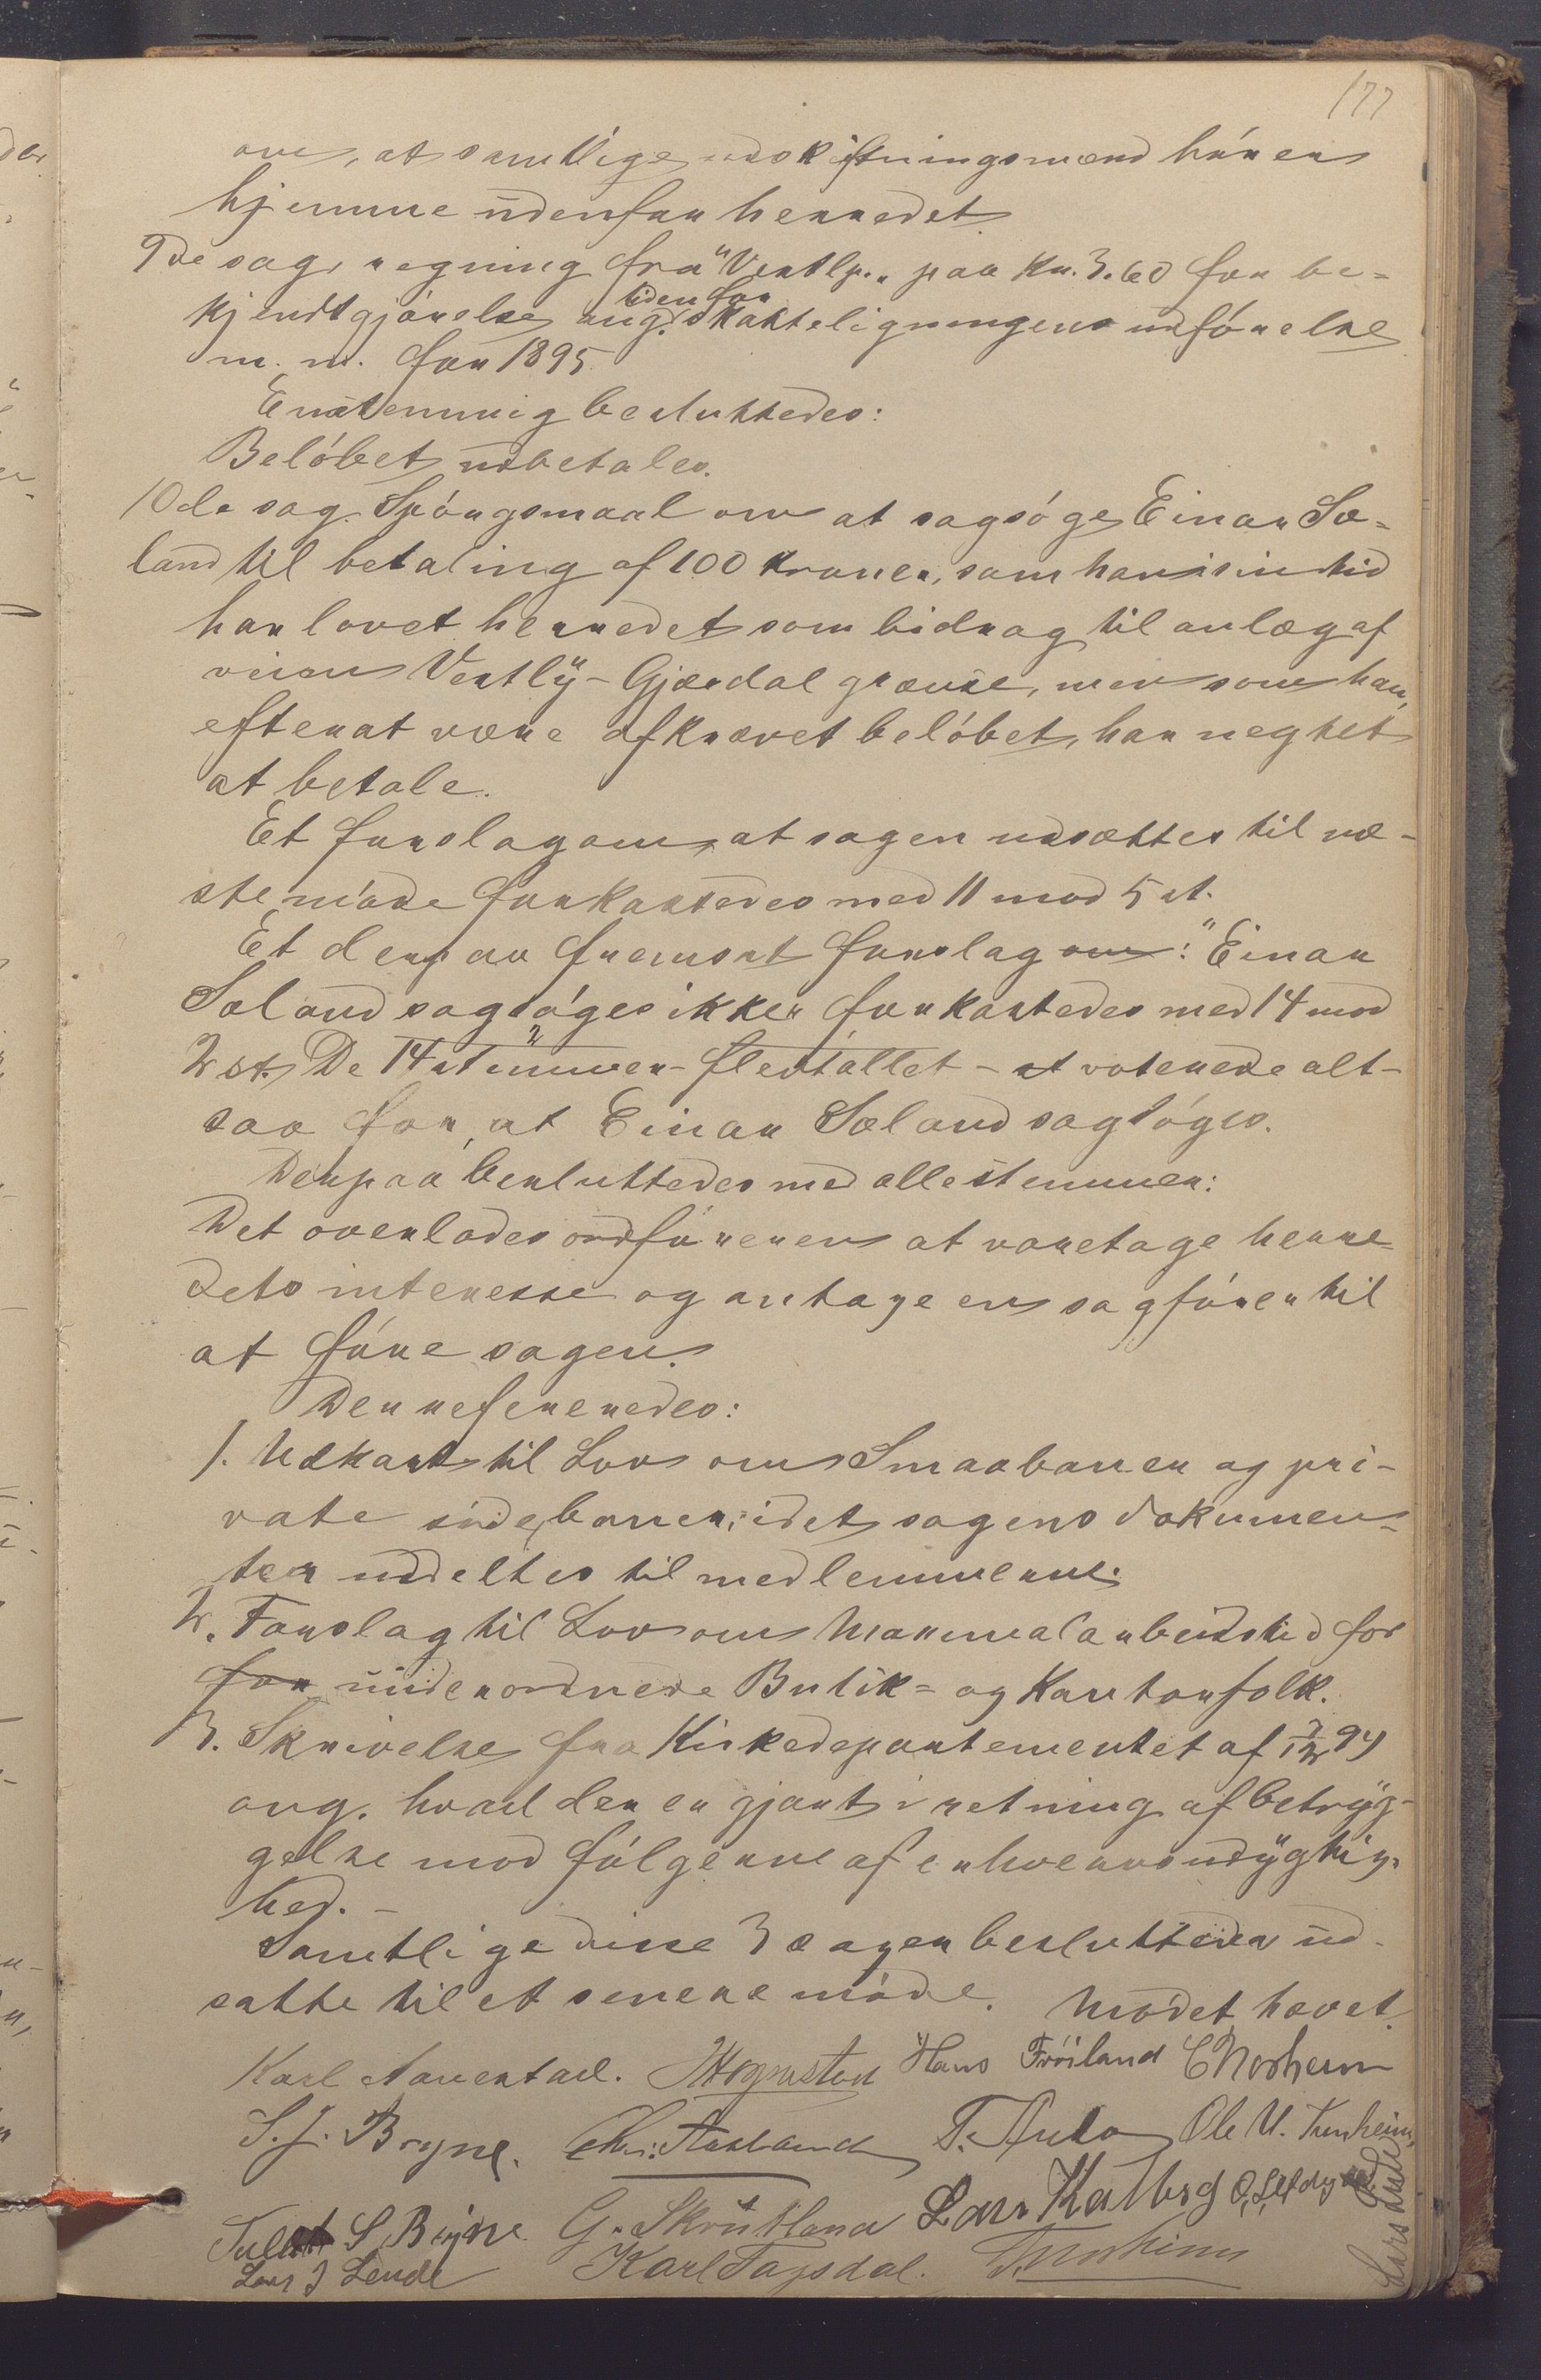 177
om, at samtlige udskiftningsmænd hører
hjemme udenfor herredet.
9de sag, regning fra "Vestly" paa Kr. 3.60 for be-
kjendtgjørelse ang. tiden for skatteligningens udførelse
m. m. for 1895.
Enstemmig besluttedes:
Beløbet udbetales.
10de sag. Spørgsmaal om at sagsøge Einar Sæ-
land til betaling af 100 kroner, som han i sin tid
har lovet herredet som bidrag til anlæg af
veien Vestly - Gjæsdal grænse, men som han,
efter at være afkrævet beløbet, har negtet
at betale.
Et forslag om, at sagen udsættes til næ-
ste møde forkastedes med 11 mod 5 st.
Et derpaa fremsat forslag om: "Einar
Sæland sagsøges ikke" forkastedes med 14 mod
2 st. De 14 stemmer - flertallet - voterede alt-
saa for, at Einar Sæland sagsøges.
Derpaa besluttedes med alle stemmer:
Det overlades ordføreren at varetage herre-
dets interesse og antage en sagfører til
at føre sagen.
Der refereredes:
1. Udkast til Lov om Smaabaner og pri-
vate sidebaner, idet sagens dokumen-
ter uddeltes til medlemmerne.
2. Forslag til Lov om Maximalarbeidstid for
for underordnede Butik- og Kontorfolk.
3. Skrivelse fra Kirkedepartementet af 7/12 94
ang. hvad der er gjort i retning af betryg-
gelse mod følgerne af erhvervsudygtig-
hed. -
Samtlige disse 3 sager besluttedes ud-
satte til et senere møde. Mødet hævet.
Karl Aarestad. Hans Frøiland
S. J. Bryne. Chr. Aasland Ole U.
S Bryne G. Skrudland Lars
Lars J Lende Karl Tagsdal.
Lars